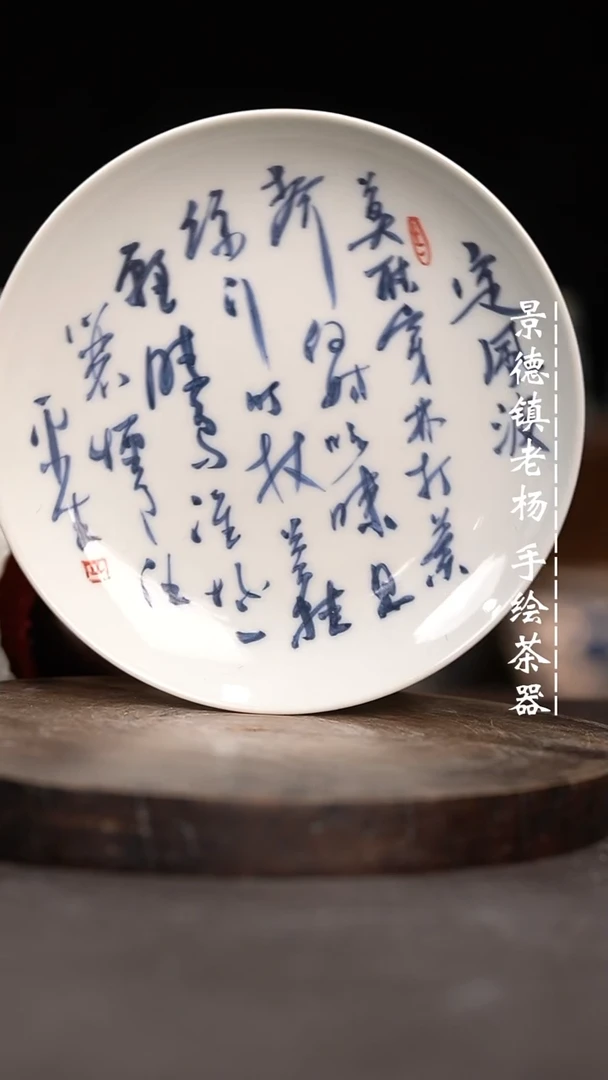 定風波
莫听穿林打葉
声何妨吟嘯且
徐行竹杖芒鞋
轻胜马谁怕一
蓑烟雨任
平生
景德镇老杨 手绘茶器